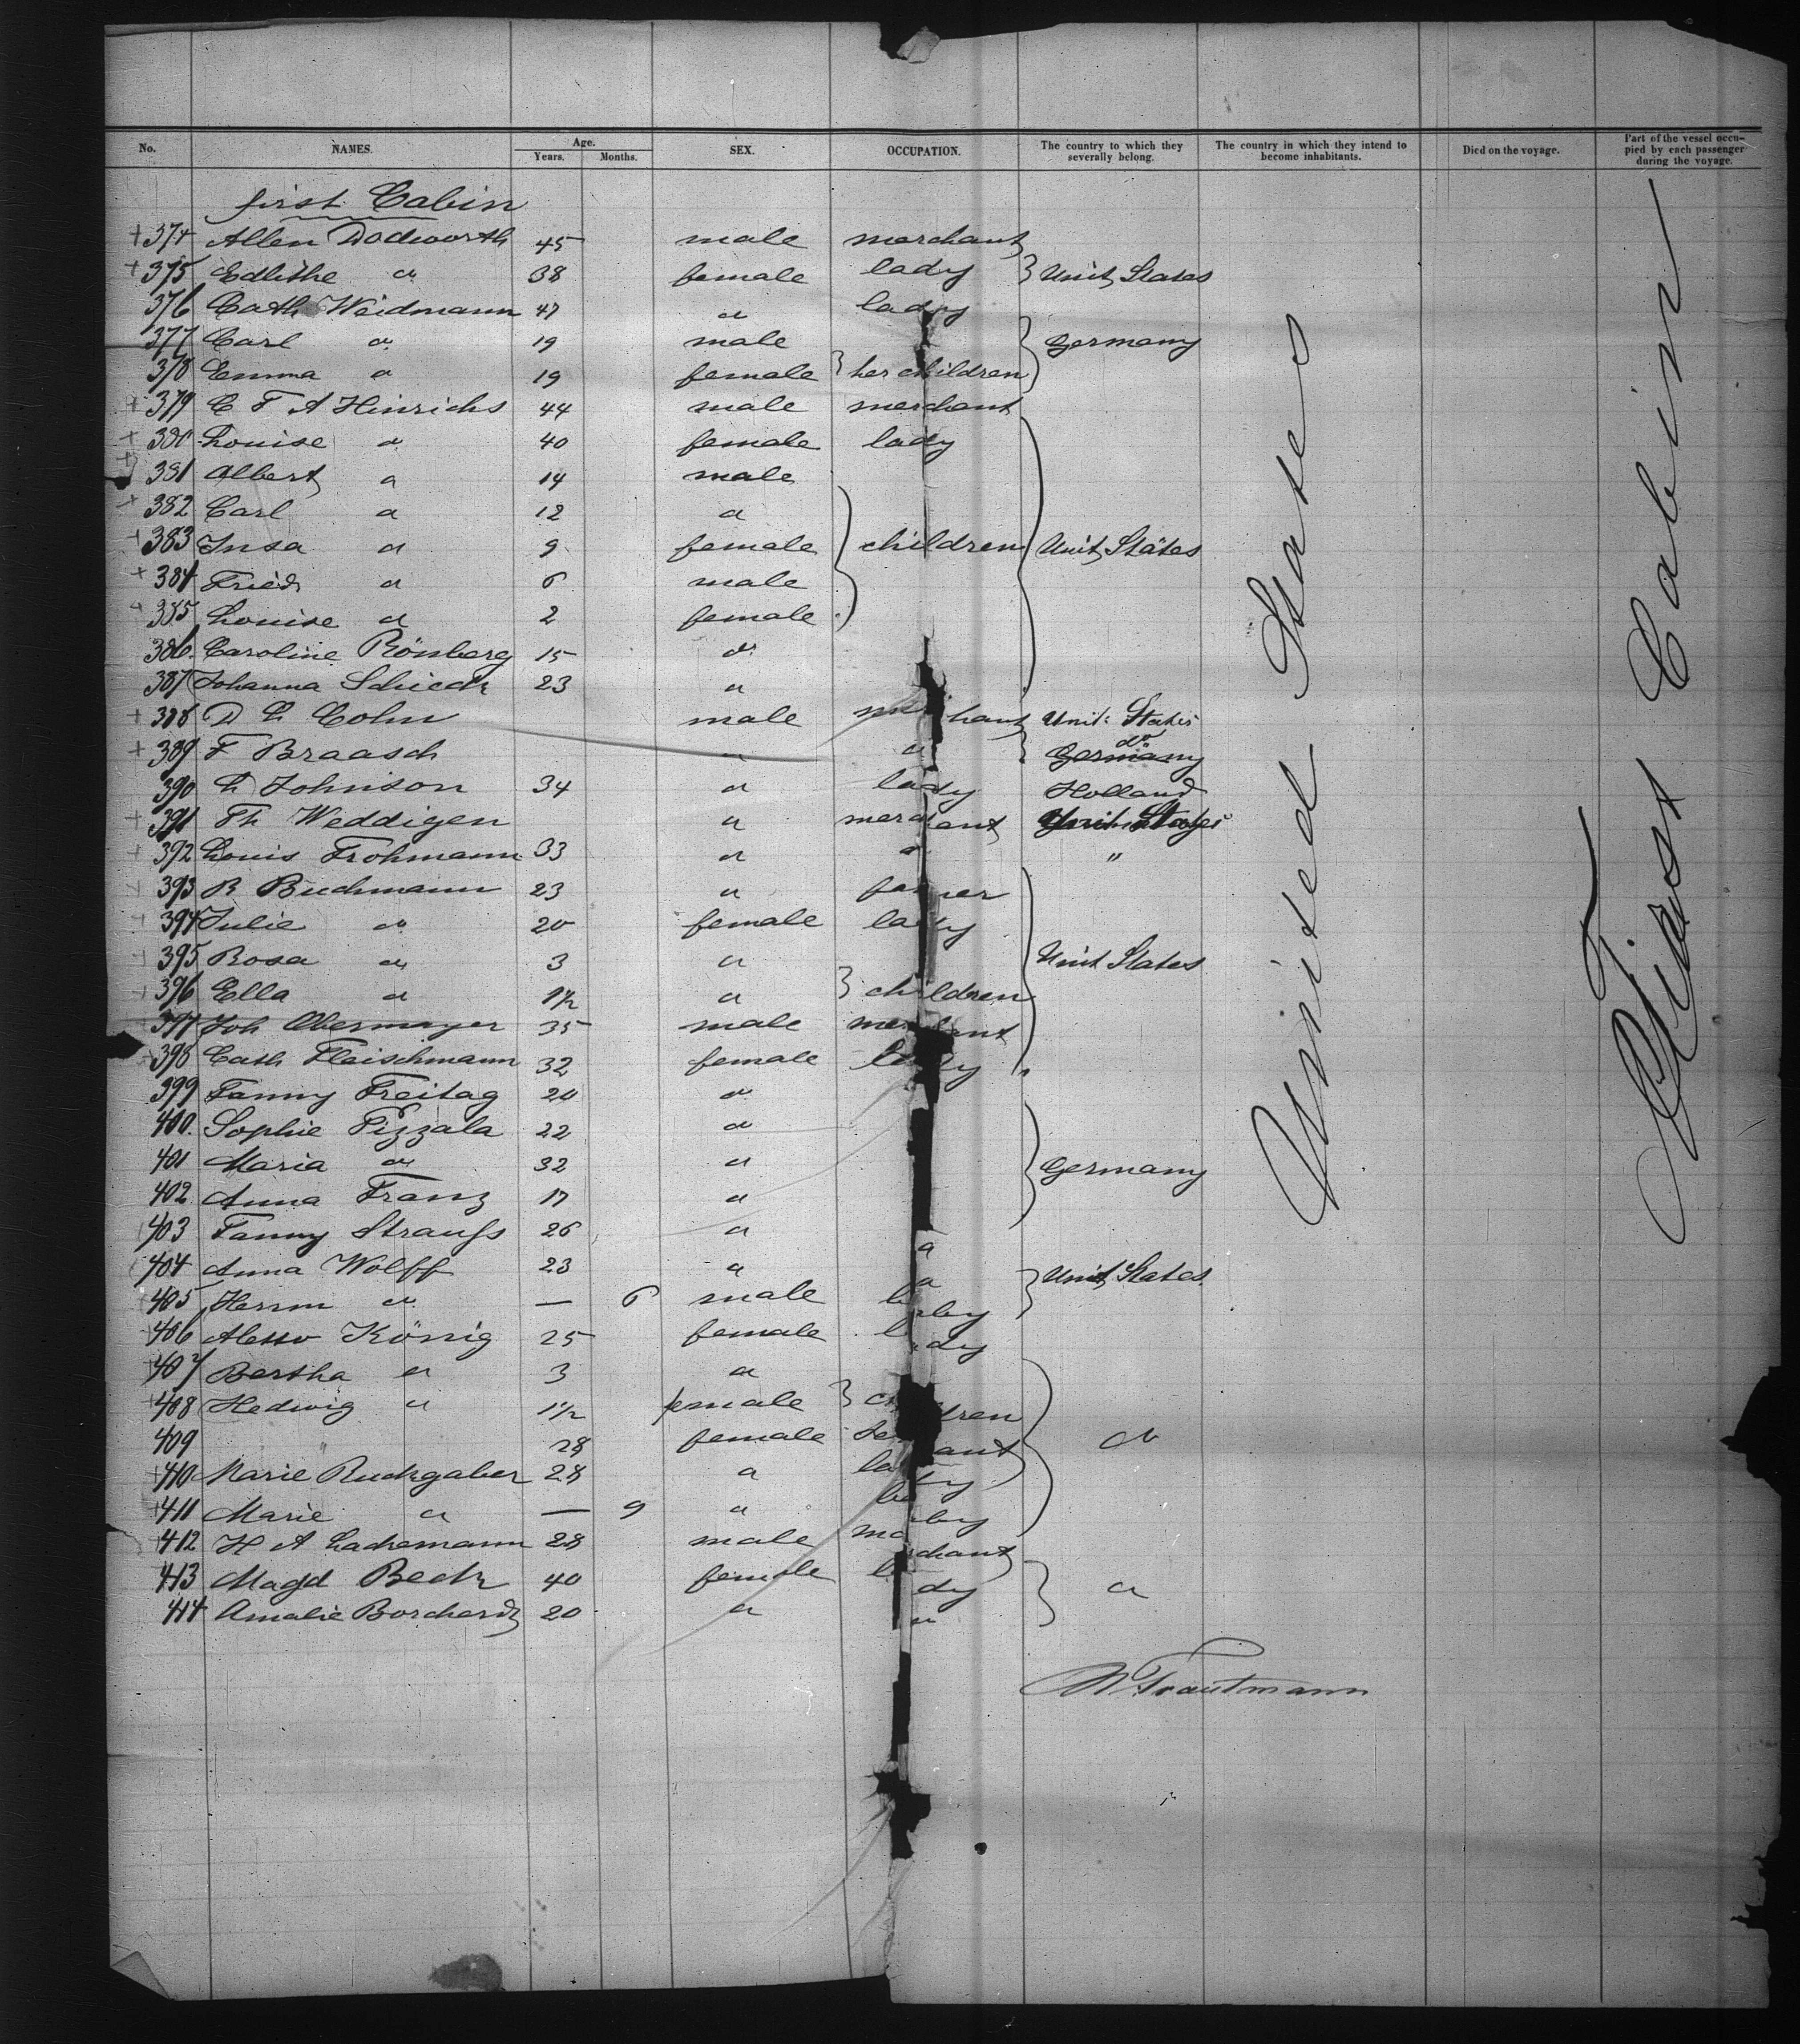 No. NAMES. Age. Years. Months. SEX. OCCUPATION. The country to which they severally belong. The country in which they intend to become inhabitants. Died on the voyage. Part of the vessel occupied by each passenger during the voyage.
first Cabin
+ 374 Allen Dodworth 45 male merchant
+ 375 Edlithe " 38 female lady } Unit States
376 Cath Weidmann 47 " lady
377 Carl " 19 male } Germany
378 Emma " 19 female } her children
+ 379 C F A Hinrichs 44 male merchant
+ 380 Louise " 40 female lady
+ 381 Albert " 14 male
+ 382 Carl " 12 "
+ 383 Insa " 9 female } children } Unit States
+ 384 Friedr " 6 male
+ 385 Louise " 2 female
386 Caroline Rönberg 15 "
387 Johanna Schieck 23 "
+ 388 D L Cohn male merchant Unit: States
+ 389 F Braasch " " Germany do
390 L Johnson 34 " lady Holland
+ 391 Th Weddigen " merchant Unit States
+ 392 Louis Frohmann 33 " " "
+ 393 B Buchmann 23 " farmer
+ 394 Julie " 20 female lady
+ 395 Rosa " 3 " Unit States
+ 396 Ella " 1½ " } children
397 Joh Obermayer 35 male merchant
398 Cath Fleischmann 32 female lady "
399 Fanny Freitag 20 "
400. Sophie Pizzala 22 "
401 Maria " 32 " } Germany
402 Anna Franz 17 "
403 Fanny Strauſs 26 " "
404 Anna Wolff 23 " " } Unit States
405 Herrm " — 6 male baby
406 König 25 female lady
407 Bertha " 3 "
408 Hedwig " 1½ female } children
409 " 28 female servant "
410 Marie Ruckgaber 28 " lady
411 Marie " — 9 " baby
412 H A Lachemann 28 male merchant
413 Magd Beck 40 female lady } "
414 Amalie Borchardt 20 " "
W Trautmann
United States
First Cabin